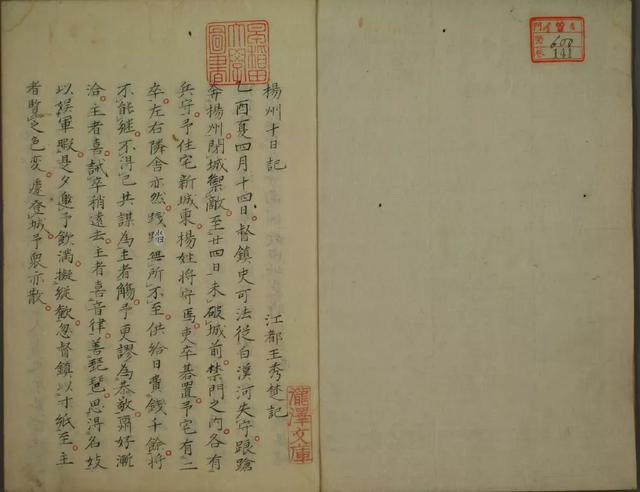 揚州十日記
江都王秀楚記
乙酉夏四月十四日督鎮史可法從白洋河失守踉蹌
奔揚州閉城禦敵至廿四日未破城前禁門之內各有
兵守予住宅新城東楊姓將守焉吏卒碁置予宅有二
卒左右隣舍亦然踐踏無所不至供給日費錢千餘將
不能継不得已共謀為主者觴予更謬為恭敬酬好漸
洽主者喜誡卒稍遠去主者喜音律善琵琶思得名妓
以娛軍暇是夕邀予飲滿擬縱歡忽督鎮以寸紙至主
者覧之色変遽登城予衆亦散
瀧澤文庫
早稲田大學圖書
600
141